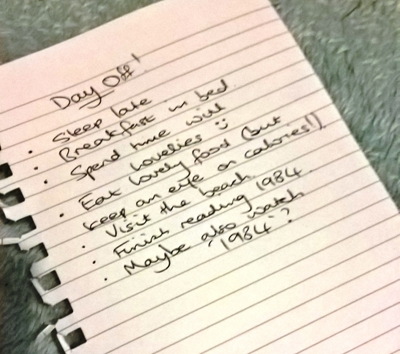 Day Off!
• Sleep late
• Breakfast in bed
• Spend time with
lovelies :)
• Eat lovely food (but
keep an eye on calories!)
• Visit the beach
• Finish reading 1984
• Maybe also watch
1984?